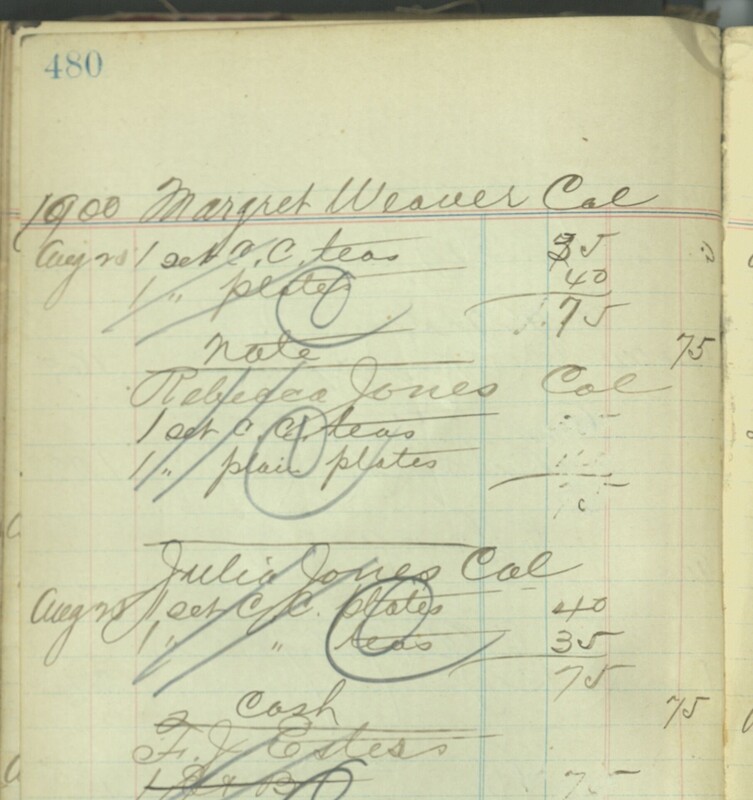 480
1900 Margret Weaver Col
Aug 25 1 set C.C. teas 35
1 " plates 40
75
Note 75
Rebecca Jones Col
1 set C.C. teas
1 " plain plates
Julia Jones Col
Aug 25 1 set C.C. plates 40
1 " " teas 35
75
Cash 75
F. J. Estess
1 Set